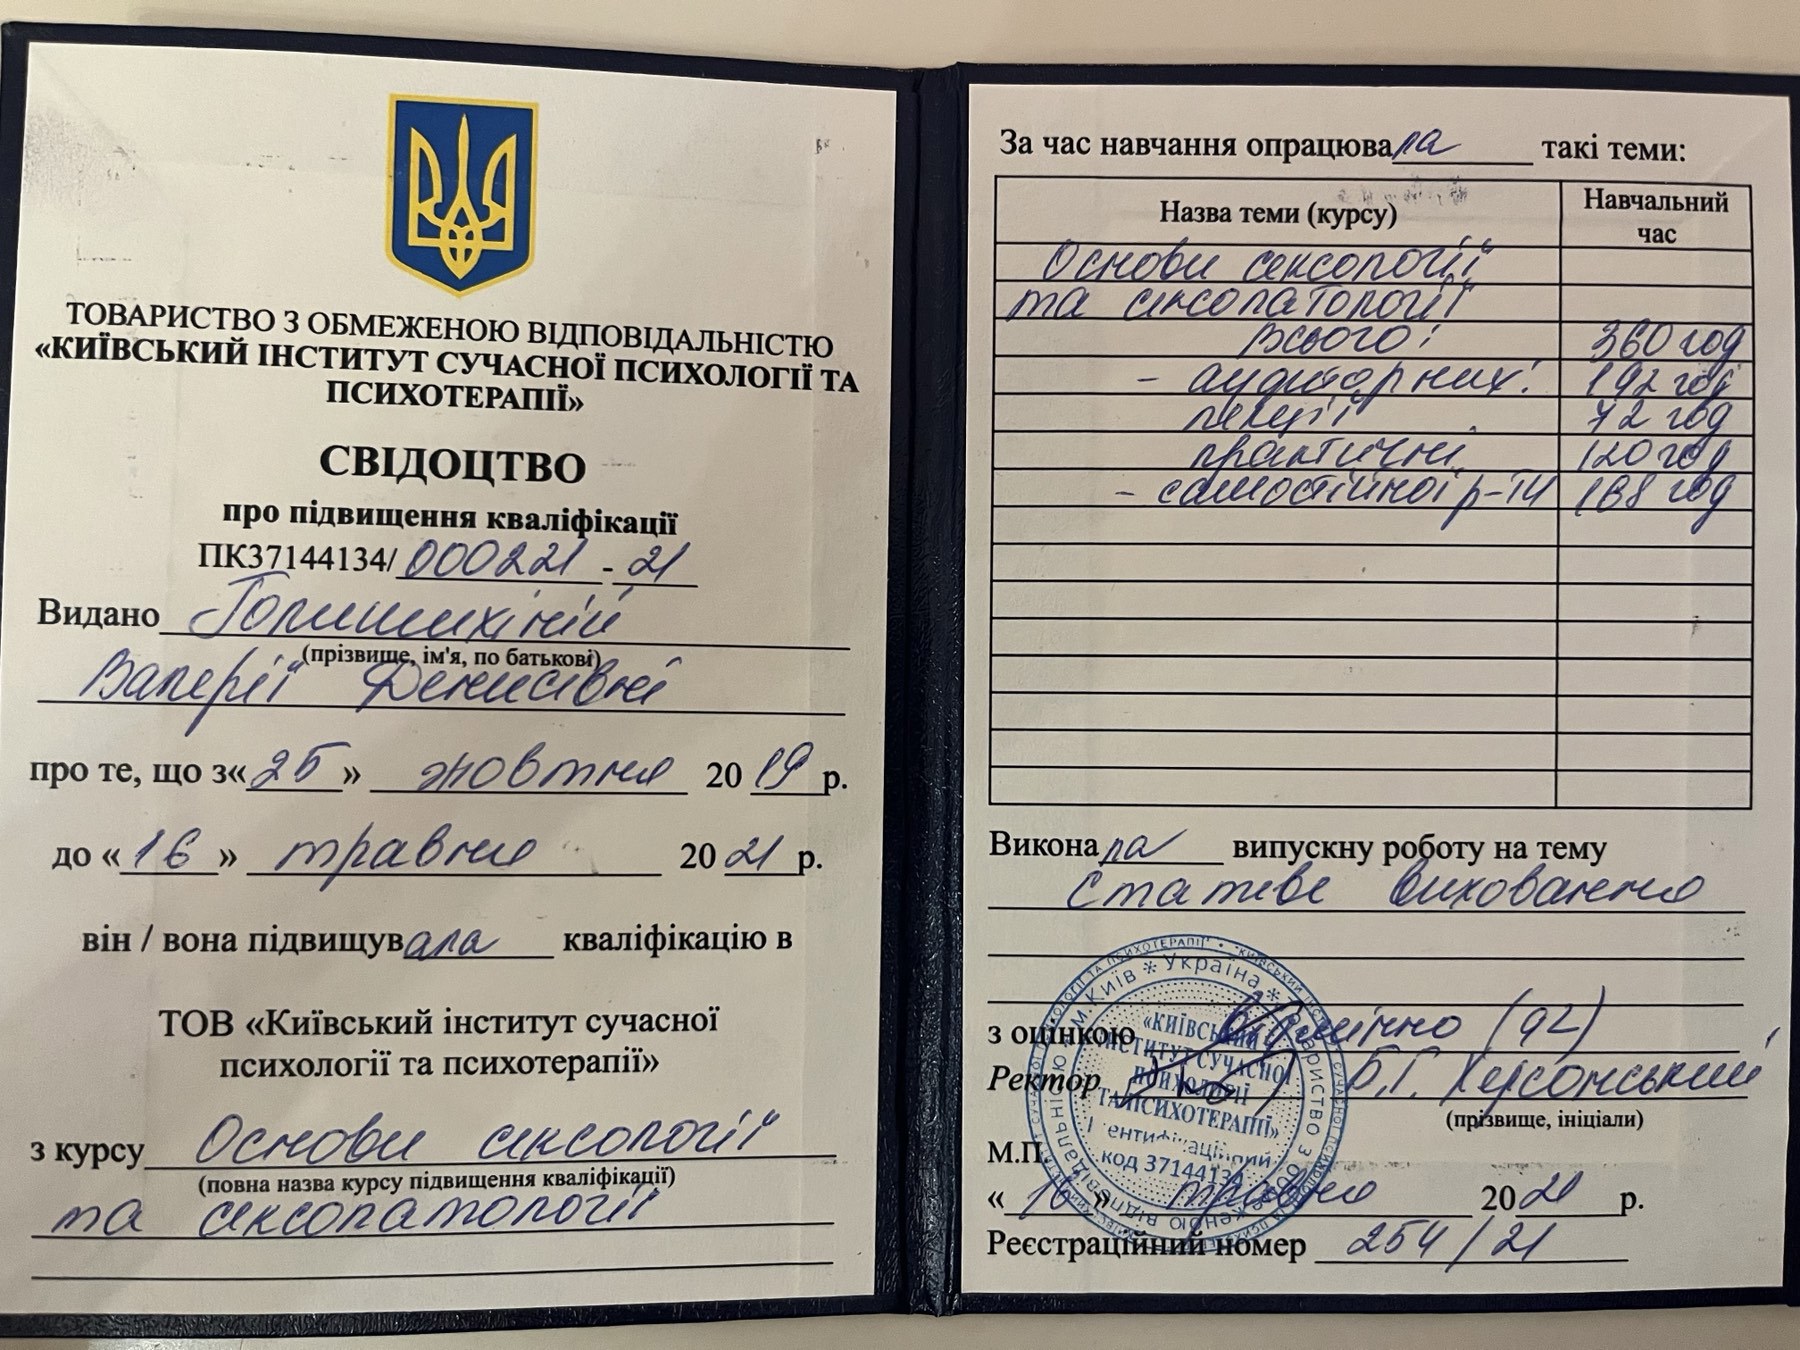 ТОВАРИСТВО З ОБМЕЖЕНОЮ ВІДПОВІДАЛЬНІСТЮ
«КИЇВСЬКИЙ ІНСТИТУТ СУЧАСНОЇ ПСИХОЛОГІЇ ТА
ПСИХОТЕРАПІЇ»
СВІДОЦТВО
про підвищення кваліфікації
ПК37144134/ 000221 - 21
Видано
(прізвище, ім'я, по батькові)
Валерії Денисівні
про те, що з« 25 » жовтня 20 19 р.
до « 16 » травня 20 21 р.
він / вона підвищувала кваліфікацію в
ТОВ «Київський інститут сучасної
психології та психотерапії»
з курсу Основи сексології
(повна назва курсу підвищення кваліфікації)
та сексопатології
За час навчання опрацювала такі теми:
Назва теми (курсу) Навчальний час
Основи сексології
та сексопатології
всього: 360 год
- аудиторних: 192 год
лекції 72 год
практичні 120 год
- самостійної р-ти 168 год
Виконала випускну роботу на тему
Статеве виховання
з оцінкою відмінно (92)
Ректор Б.Г. Херсонський
(прізвище, ініціали)
М.П.
« 16 » травня 20 21 р.
Реєстраційний номер 254/21
Україна * м. Київ * Товариство з обмеженою відповідальністю
«КИЇВСЬКИЙ
ІНСТИТУТ СУЧАСНОЇ
ПСИХОЛОГІЇ
ТА ПСИХОТЕРАПІЇ»
код 37144134